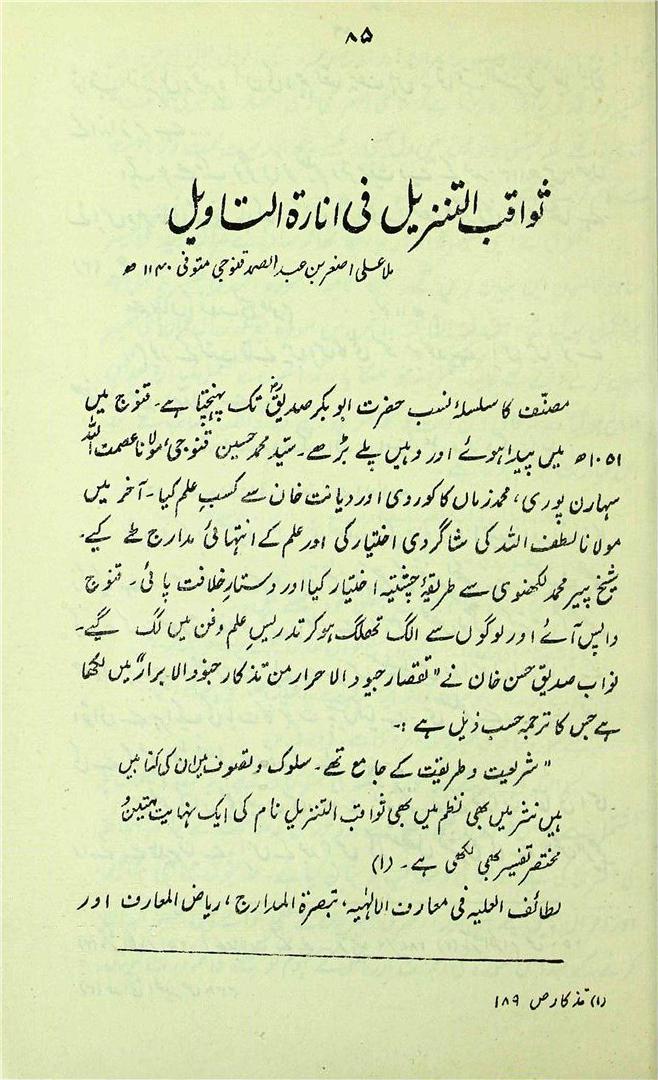 ۸۵
ثواقب التنزیل فی انارۃ التاویل
ملا علی اصغر بن عبدالصمد قنوجی متوفی ۱۱۴۰ ھ
مصنّف کا سلسلۂ نسب حضرت ابوبکر صدیقؓ تک پہنچتا ہے۔ قنوج میں
۱۰۵۱ ھ میں پیدا ہوئے اور وہیں پلے بڑھے۔ سیّد محمد حسین قنوجی، مولانا عصمت اللہ
سہارن پوری، محمد زماں کاکوروی اور دیانت خان سے کسبِ علم کیا۔ آخر میں
مولانا لطف اللہ کی شاگردی اختیار کی اور علم کے انتہائی مدارج طے کیے۔
شیخ پیر محمد لکھنوی سے طریقۂ چشتیہ اختیار کیا اور دستارِ خلافت پائی۔ قنوج
واپس آئے اور لوگوں سے الگ تھلگ ہو کر تدریسِ علم و فن میں لگ گیے۔
نواب صدیق حسن خان نے "تقصار جیود الاحرار من تذکار جنود الابرار" میں لکھا
ہے جس کا ترجمہ حسب ذیل ہے :۔
"شریعت و طریقت کے جامع تھے۔ سلوک و تصوف میں ان کی کتابیں
ہیں نثر میں بھی نظم میں بھی ثواقب التنزیل نام کی ایک نہایت متین و
مختصر تفسیر بھی لکھی ہے۔ (۱)
لطائف العلیہ فی معارف الالٰہیہ، تبصرۃ المدارج، ریاض المعارف اور
(۱) تذکار ص ۱۸۹